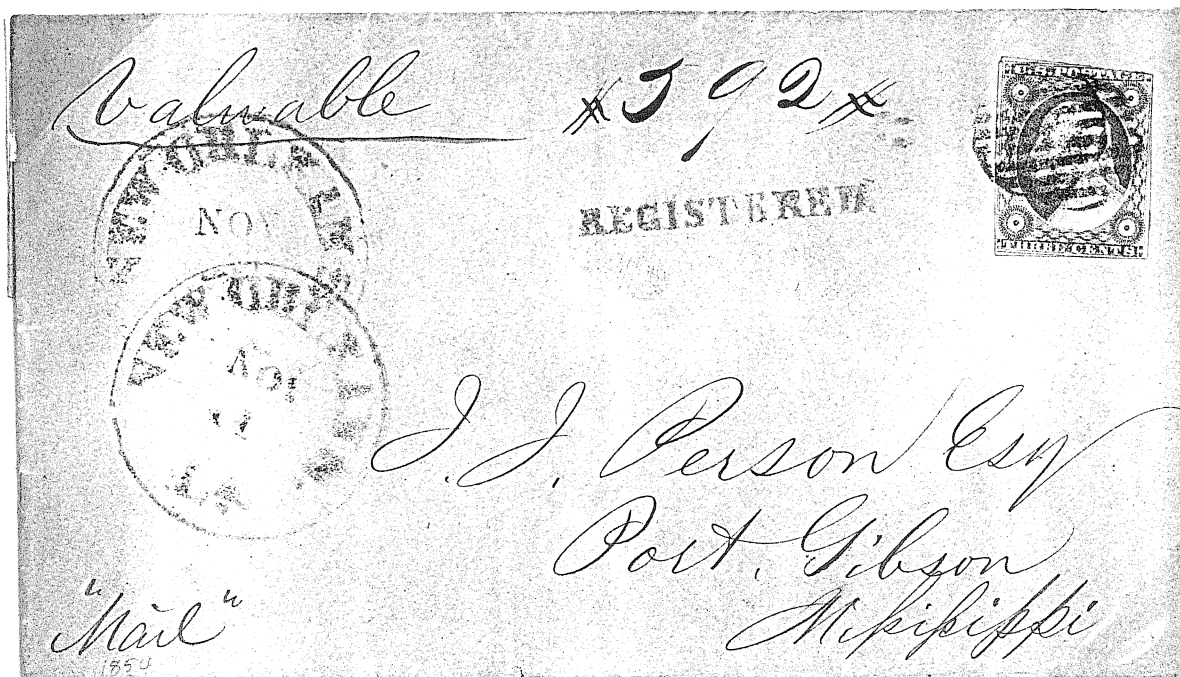 Valuable
#592#
U.S. POSTAGE
THREE CENTS
REGISTERED
NEW ORLEANS
NOV
NEW ORLEANS
NOV
LA
J. J. Person Esq
Port. Gibson
Missisippi
"Mail"